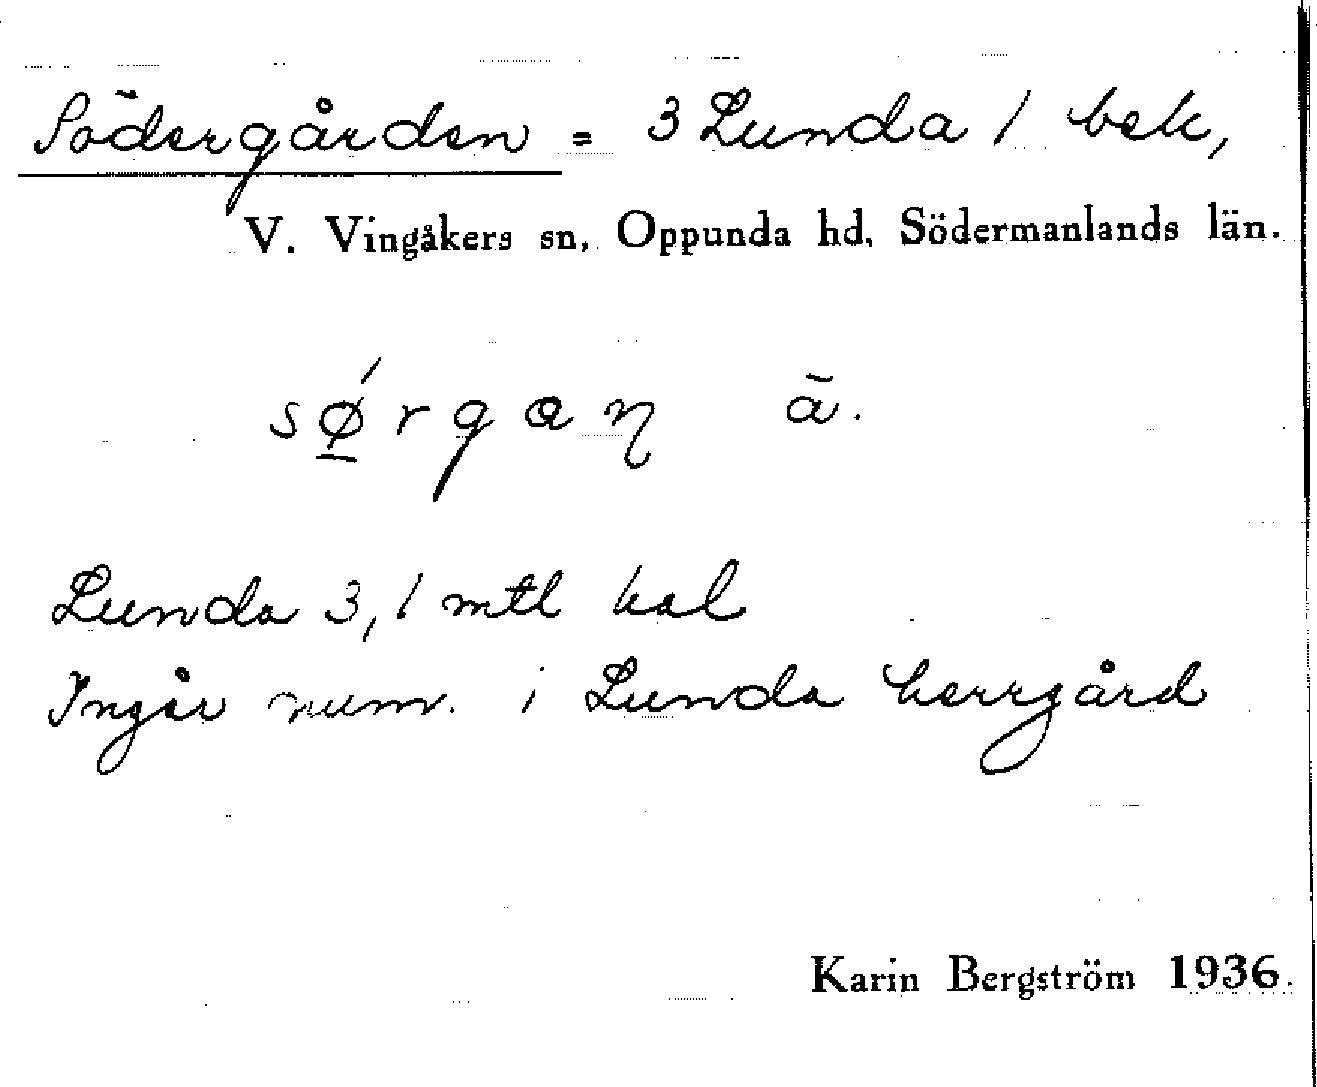 Södergården = 3 Lunda / bek,
V. Vingåkers sn, Oppunda hd, Södermanlands län.
sǿ̱rgaɳ ā.
Lunda 3, 1 mtl hal
Ingår num. i Lunda herrgård
Karin Bergström 1936.